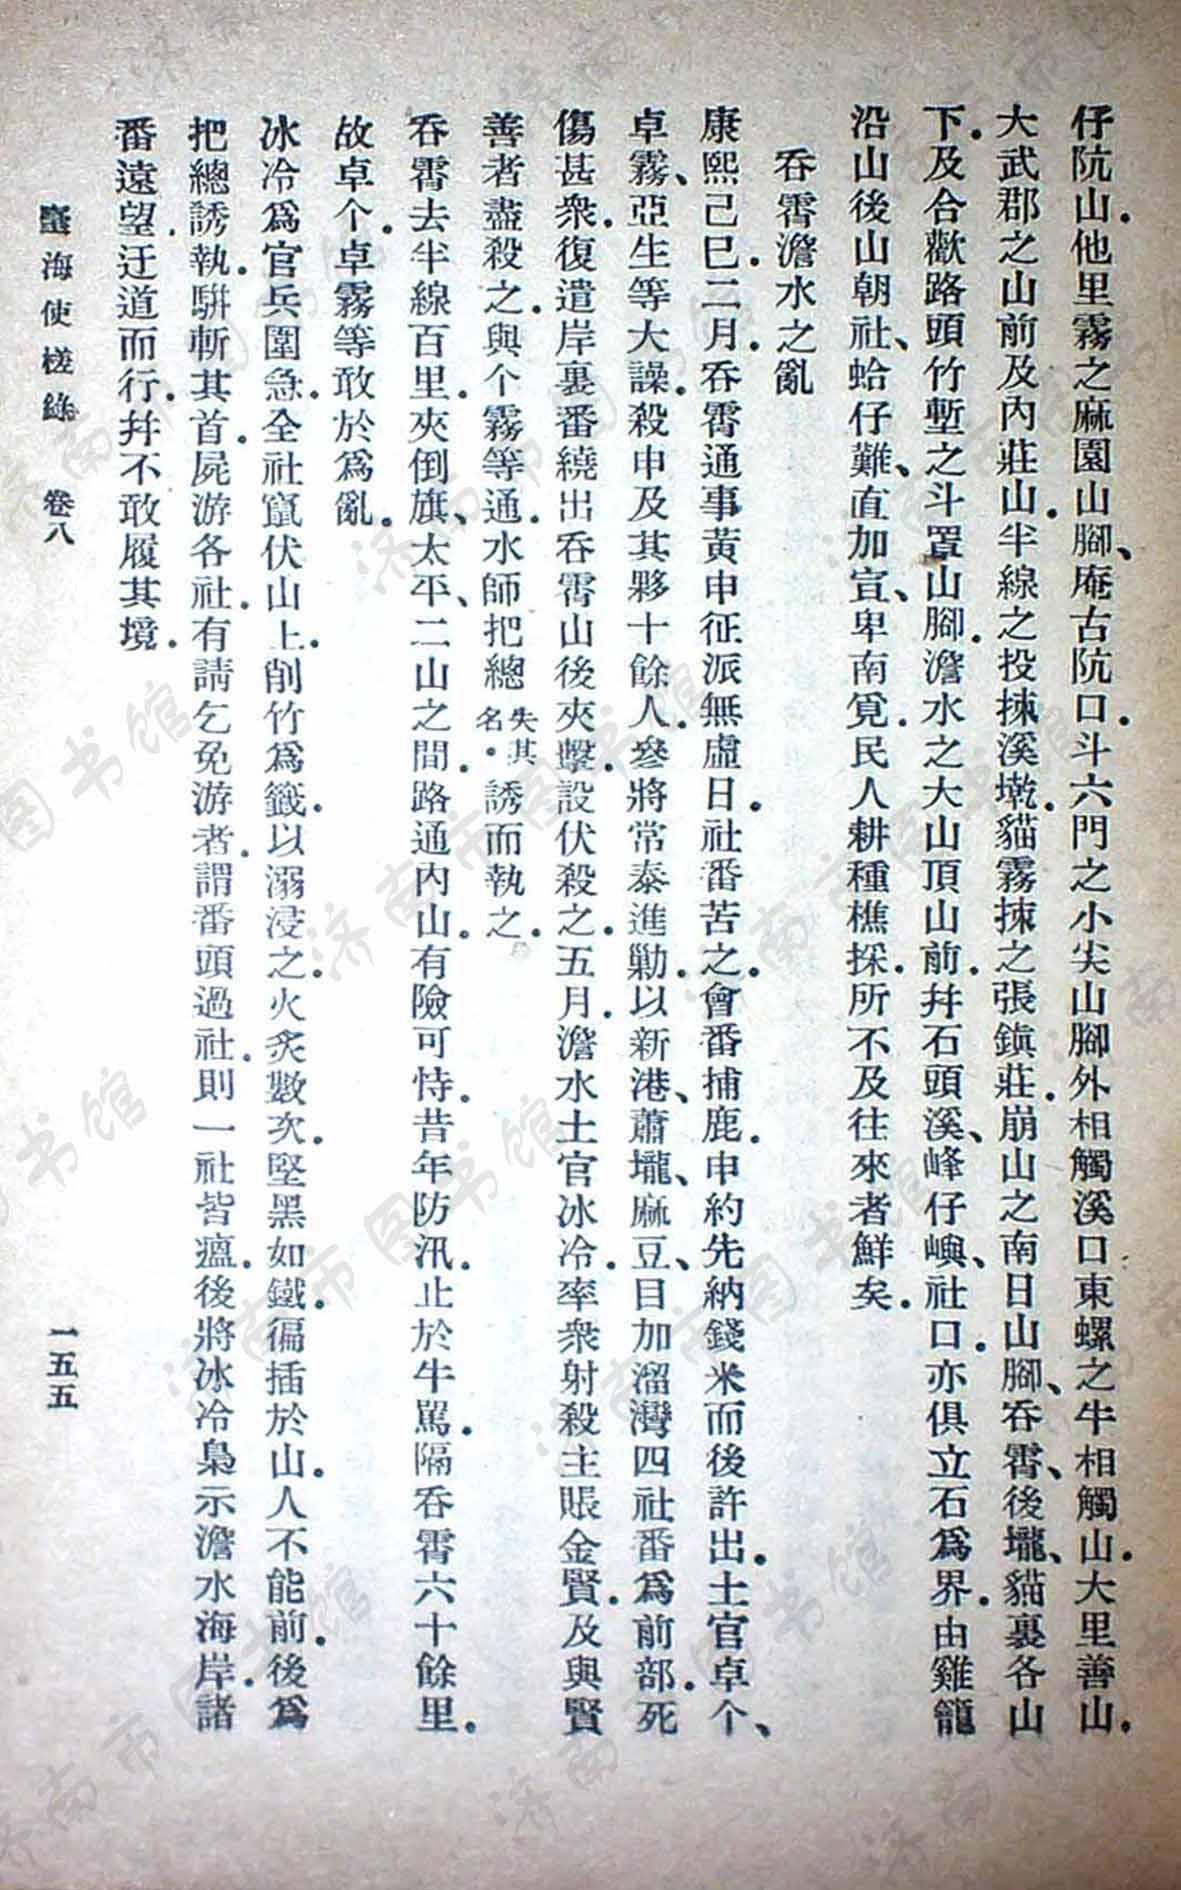 仔阬山。他里霧之麻園山腳、庵古阬口。斗六門之小尖山腳外相觸溪口東螺之牛相觸山。大里善山。
大武郡之山前及內莊山。半線之投揀溪墘。貓霧揀之張鎮莊。崩山之南日山腳、吞霄、後壠、貓裏各山
下。及合歡路頭竹塹之斗罩山腳。澹水之大山頂山前。幷石頭溪、峰仔嶼、社口。亦俱立石爲界。由雞籠
沿山後山朝社、蛤仔難、直加宣、卑南覓。民人耕種樵採。所不及往來者鮮矣。
吞霄澹水之亂
康熙己巳。二月。吞霄通事黃申征派無虛日。社番苦之。會番捕鹿。申約先納錢米而後許出。土官卓个、
卓霧、亞生等大譟。殺申及其夥十餘人。參將常泰進勦。以新港、蕭壠、麻豆、目加溜灣四社番爲前部。死
傷甚衆。復遣岸裏番繞出吞霄山後夾擊。設伏殺之。五月。澹水土官冰冷。率衆射殺主賬金賢。及與賢
善者盡殺之。與个霧等通。水師把總失其名。誘而執之。
吞霄去半線百里。夾倒旗、太平、二山之間。路通內山。有險可恃。昔年防汛。止於牛罵。隔吞霄六十餘里。
故卓个。卓霧等敢於爲亂。
冰冷爲官兵圍急。全社竄伏山上。削竹爲籤。以溺浸之。火炙數次。堅黑如鐵。徧插於山。人不能前。後爲
把總誘執。駢斬其首。屍游各社。有請乞免游者。謂番頭過社。則一社皆瘟。後將冰冷梟示澹水海岸。諸
番遠望。迂道而行。幷不敢履其境。
臺海使槎錄　卷八　一五五
济南市图书馆